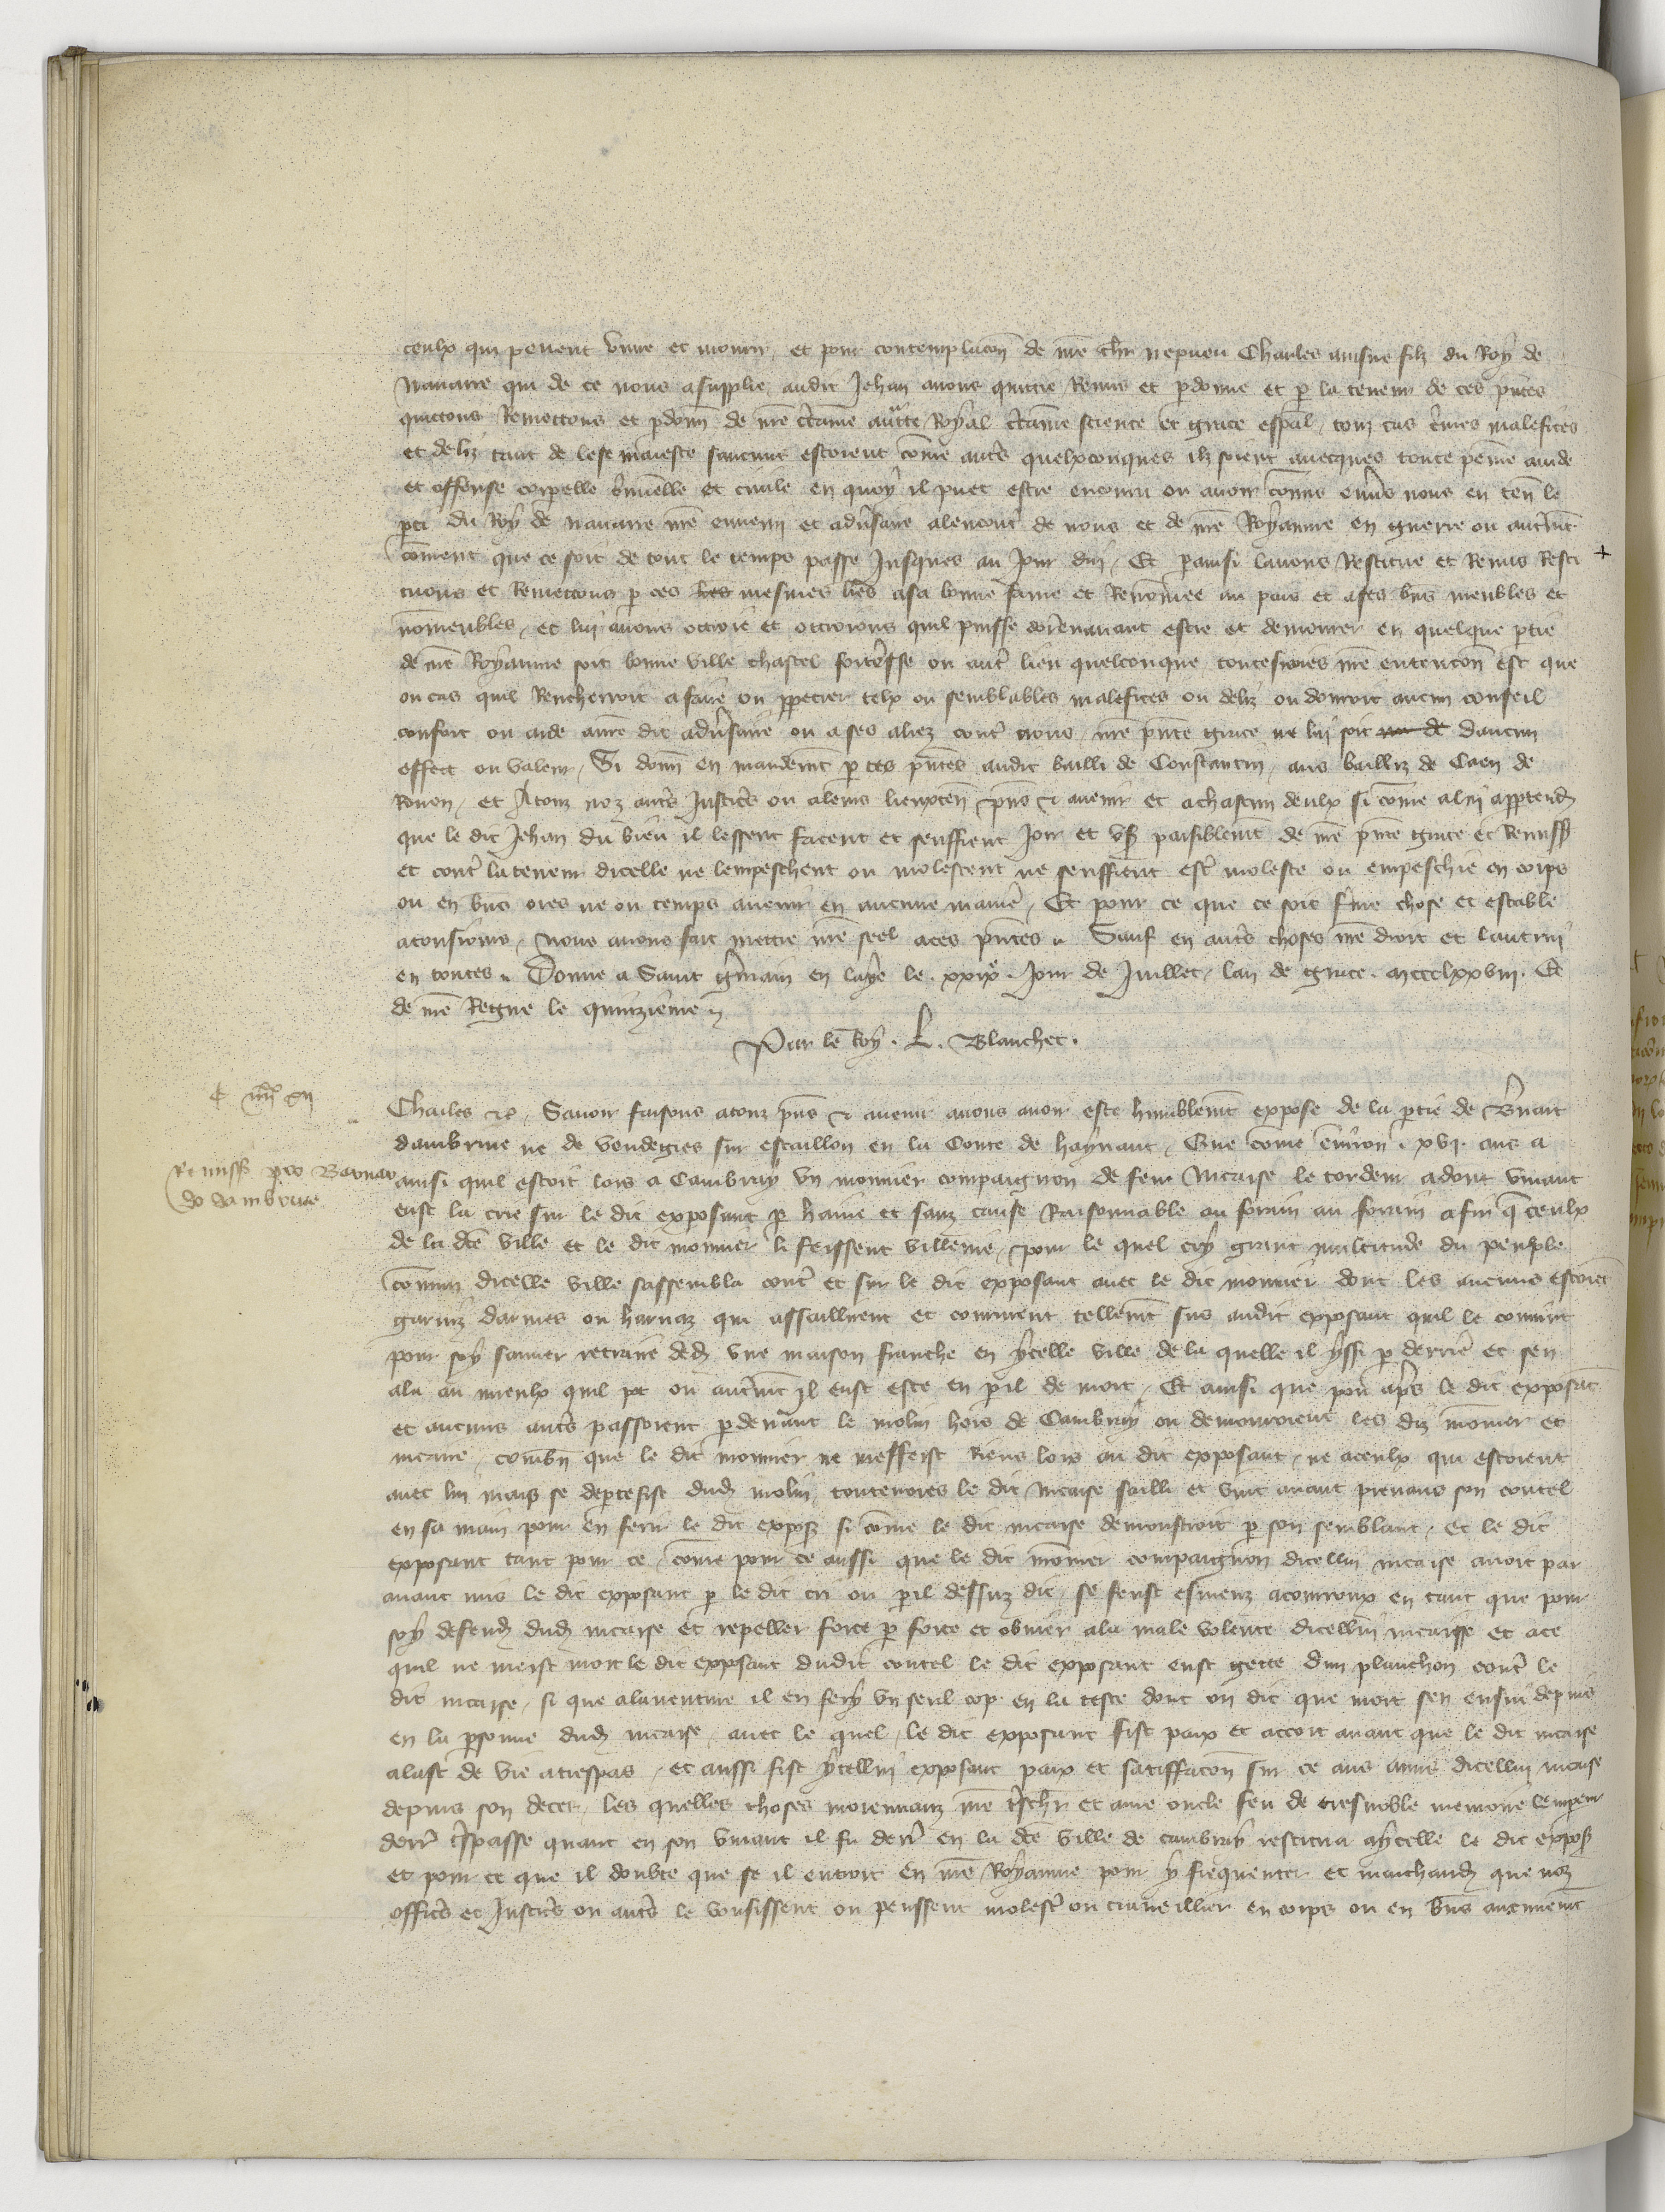 ceulx qui peuent viure et mourir, et pour contemplacõn de nrẽ chr̃ nepueu Charles ainsne filz du Roy de
Nauarre qui de ce nous a supplie audit Jehan auons quittie Remis et p̱donne et p̱ la teneur de ces pñtes
quittons Remettons et p̱donñ de nrẽ cẽrtaine auctte Royal cẽrtaine science et grace esp̃al, touz cas crĩmes malefices
et deliz tant de lese maieste sancuns estoient cõme autr̃s quelxconques ilz soient auecques toute peinne amde
et offense corpelle crĩmnelle et ciuile en quoy il puet estre encouru ou auoir comis enũs nous en ten̄ le
p̱ti du Roy de nauarre nrẽ ennemi et adũsaire alencontr̃ de nous et de nrẽ Royaume en guerre ou autr̃mt̃
cõment que ce soit de tout le temps passe Jusques au Jour dui, Et p̱ainsi lauons Restitue et Remis Resti
tuons et Remettons p̱ ces les mesmes lr̃es a sa bonne fame et Renõmee au pais et a ses bñs meubles et
nõmeubles, et lui auons ottroie et ottroions quil puisse dorẽnauant estre et demourer en quelque p̱tie
de nrẽ Royaume soit bonne ville chastel forter̃sse ou autr̃ lieu quelconque toutesuoies nrẽ entencõn est que
ou cas quil Rencherroit a faire ou pp̱etrer telx ou semblables malefices ou deliz ou donroit aucun conseil
confort ou aide a nrẽ dit adũsaire ou a ses aliez contr̃ nous, nrẽ pñte grace ne lui soit daucun
effect ou valeur, Si donñ en mandemt̃ p̱ ces pñtes audit bailli de Constantin, aus bailliz de Caen de
Rouen, et Atouz noz autr̃s Justicr̃s ou aleurs lieuxten̄ pñs & auenir et achascun deulx si cõme alui app̱tend̃
que le dit Jehan du bieu il lessent facent et seuffrent Joir et vs̃ paisiblemt̃ de nrẽ pñte grace et Remiss̃
et contr̃ la teneur dicelle ne lempeschent ou molestent ne seuffrent estr̃ moleste ou empeschie en corps
ou en bñs ores ne ou temps auenir en aucune manier̃, Et pour ce que ce soit fẽrme chose et estable
atousiours, Nous auons fait mettre nrẽ seel aces pñtes. Sauf en autr̃s choses nrẽ droit et lautrui
en toutes. Donne a Saint gẽrmain en laye le .xxixe. Jour de Juillet, lan de grace. mccclxxviii. Et
de nrẽ Regne le quinzieme
Par le Roy. L. Blanchet.
Charles &c. Sauoir faisons atouz pñs & auenir auons auoir este humblemt̃ expose de la p̱tie de Bñart
dambrine ne de vendegies sur escaillon en la Conte de haynaut, Que cõme enũiron .xvj. ans a
Remiss̃ pro Bernar
do dambrine
ainsi quil estoit lors a Cambray vn monnier compaignon de feu Nicaise le cordeur adont viuant
eust la crie sur le dit exposant p̱ haine et sanz cause Raisonnable ou forain au forain afin q̃ ceulx
de la dcẽ ville et le dit monnier li feissent villenie, pour le quel cry grant multitude du peuple
cõmun dicelle ville sassembla contr̃ et sur le dit exposant auec le dit monnier dont les aucuns estoiẽt
garniz darmes ou harnaz qui assaillirent et coururent tellemt̃ sus audit exposant quil le conuint
pour soy sauuer retraire ded̃ vne maison franche en ycelle ville de la quelle il yssi p̱ derrier̃ et sen
ala au mieulx quil pot ou autr̃mt̃ Jl eust este en p̱il de mort, Et ainsi que pou apr̃s le dit exposãt
et aucuns autr̃s passoient p̱deuãnt le molin hors de Cambray ou demouroient les diz mõnier et
nicaise, combñ que le dit monnier ne meffeist Riens lors au dit exposant, ne aceulx qui estoient
auec lui mais se dep̱tesist dud̃ molin, toutevoies le dit Nicaise sailli et vint auant prenans son coutel
en sa main pour en ferir le dit expos̃ si cõme le dit nicaise demonstroit p̱ son semblant, Et le dit
exposant tant pour ce, cõme pour ce aussi que le dit mõnier compaignon dicellui nicaise auoit par
auant mis le dit exposant p̱ le dit cri ou p̱il dessuz dit, se feust esmeuz acourroux en tant que pour
soy defend̃ dud̃ nicaise et repeller force p̱ force et obuier ala male volente dicellui nicaise et ace
quil ne meist mort le dit exposant dudit coutel le dit exposant eust gette dun planchon contr̃ le
dit nicaise, si que alauenture il en fery vn seul cop en la teste dont on dit que mort sen ensui depuis
en la p̱sonne dud̃ nicaise, auec le quel, le dit exposant fist paix et accort auant que le dit nicaise
alast de vie atrespas, et aussi fist ycellui exposant paix et satiffacõn sur ce aus amis dicellui nicaise
depuis son deces, les quelles choses moiennanz nrẽ tr̃schr̃ et ame oncle feu de tresnoble memoire lemp̱eur
derr̃ tr̃spasse quant en son viuant il fu derr̃ en la dcẽ ville de cambray restitua aycelle le dit expos̃
et pour ce que il doubte que se il entroit en nrẽ Royaume pour y frequenter et marchand̃ que noz
officr̃s et Justicr̃s ou autr̃s le voulsissent ou peussent molestr̃ ou trauueillier en corps ou en bñs aucunemt̃